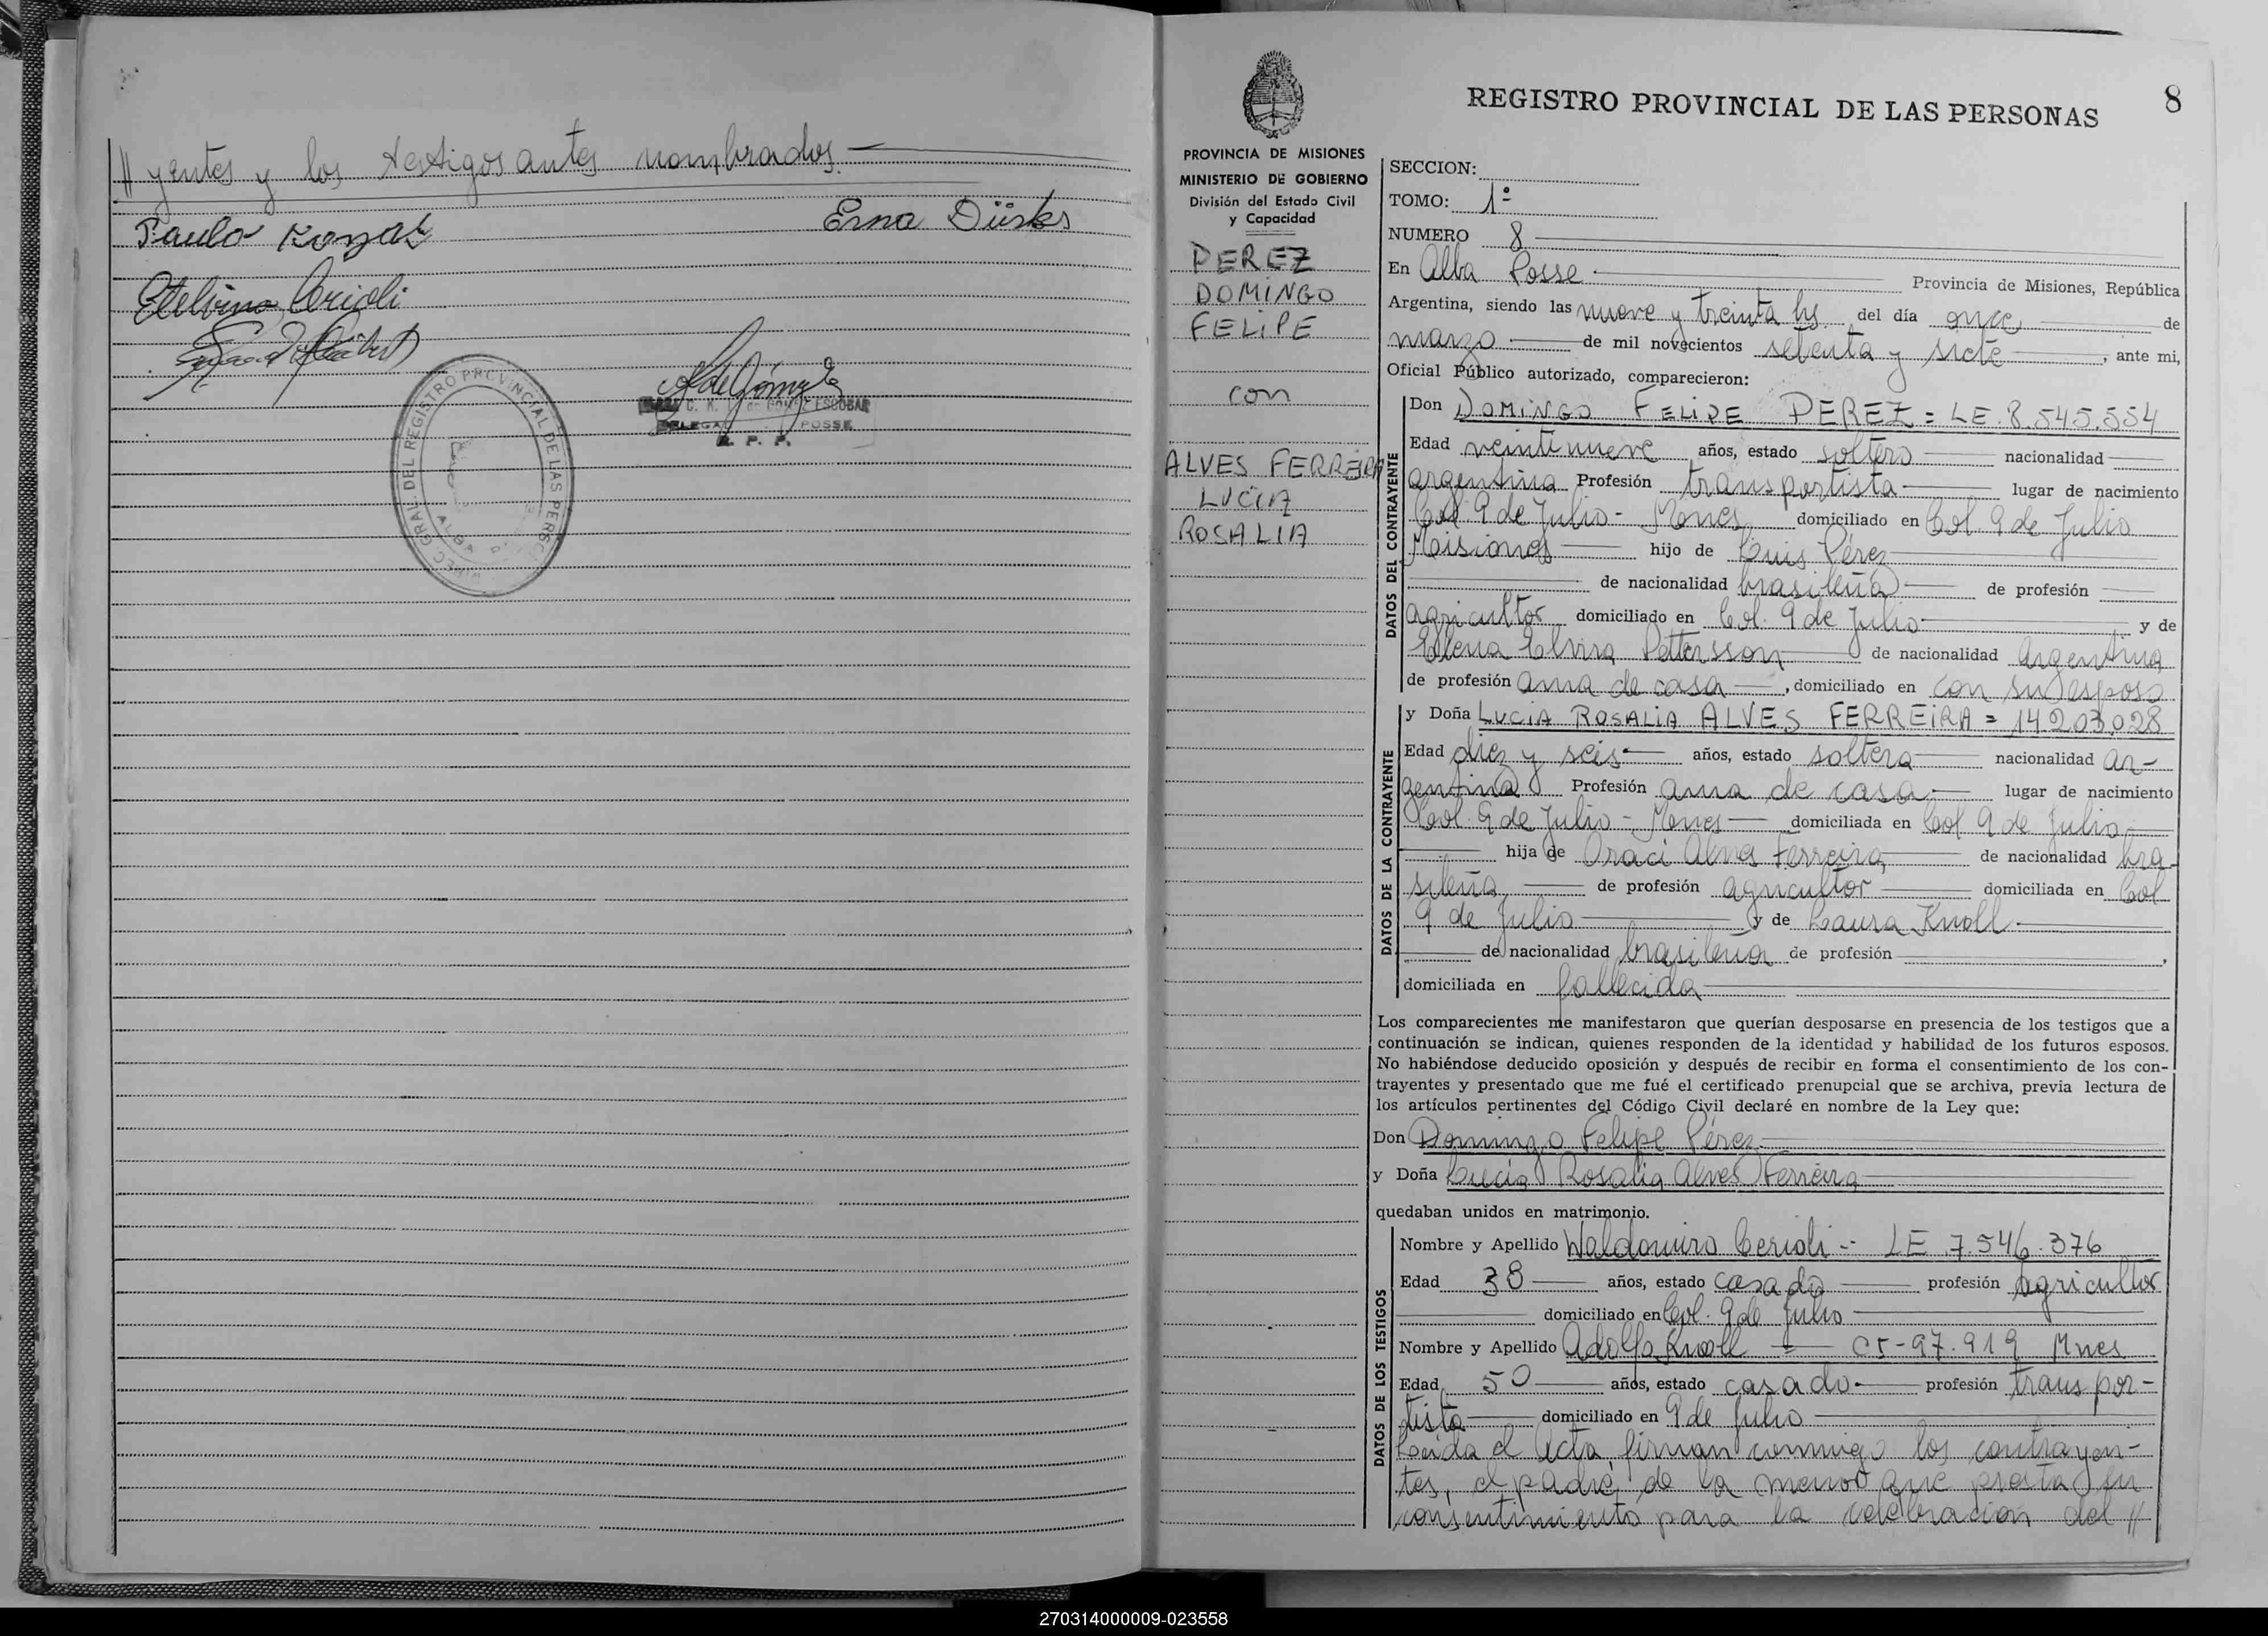 // yentes y los testigos antes nombrados.
Paulo Kozak
Erna Dürks
Etelvino Cerioli
DIREC. GRAL. DEL REGISTRO PROVINCIAL DE LAS PERSONAS
ALBA POSSE
DE GOMEZ ESCOBAR
DELEGA POSSE
R. P. P.
REGISTRO PROVINCIAL DE LAS PERSONAS
8
PROVINCIA DE MISIONES
MINISTERIO DE GOBIERNO
División del Estado Civil
y Capacidad
PEREZ
DOMINGO
FELIPE
con
ALVES FERREIRA
LUCIA
ROSALIA
SECCION:
TOMO: 1º
NUMERO 8
En Alba Posse Provincia de Misiones, República
Argentina, siendo las nueve y treinta hs del día once de
marzo de mil novecientos setenta y siete, ante mi,
Oficial Público autorizado, comparecieron:
DATOS DEL CONTRAYENTE
Don DOMINGO FELIPE PEREZ = LE. 8.545.554
Edad veintinueve años, estado soltero nacionalidad
argentina Profesión transportista lugar de nacimiento
Col 9 de Julio - Mnes domiciliado en Col. 9 de Julio
Misiones hijo de Luis Pérez
de nacionalidad brasileña de profesión
agricultor domiciliado en Col. 9 de Julio y de
Elena Elvira Pettersson de nacionalidad Argentina
de profesión ama de casa, domiciliado en con su esposo
DATOS DE LA CONTRAYENTE
y Doña LUCIA ROSALIA ALVES FERREIRA = 14.203.028
Edad diez y seis años, estado soltera nacionalidad ar-
gentina Profesión ama de casa lugar de nacimiento
Col. 9 de Julio - Mnes domiciliada en Col 9 de Julio
hija de Oraci Alves Ferreira de nacionalidad bra-
sileña de profesión agricultor domiciliada en Col
9 de Julio y de Laura Knoll
de nacionalidad brasileña de profesión ,
domiciliada en fallecida
Los comparecientes me manifestaron que querían desposarse en presencia de los testigos que a
continuación se indican, quienes responden de la identidad y habilidad de los futuros esposos.
No habiéndose deducido oposición y después de recibir en forma el consentimiento de los con-
trayentes y presentado que me fué el certificado prenupcial que se archiva, previa lectura de
los artículos pertinentes del Código Civil declaré en nombre de la Ley que:
Don Domingo Felipe Pérez
y Doña Lucia Rosalia Alves Ferreira
quedaban unidos en matrimonio.
DATOS DE LOS TESTIGOS
Nombre y Apellido Waldomiro Cerioli - LE 7.546.376
Edad 38 años, estado casado profesión agricultor
domiciliado en Col. 9 de Julio
Nombre y Apellido Adolfo Knoll - CI-97.919 Mnes
Edad 50 años, estado casado profesión transpor-
tista domiciliado en 9 de Julio
Leida el Acta, firman conmigo los contrayen-
tes, el padre de la menor que presta su
consentimiento para la celebracion del //
270314000009-023558